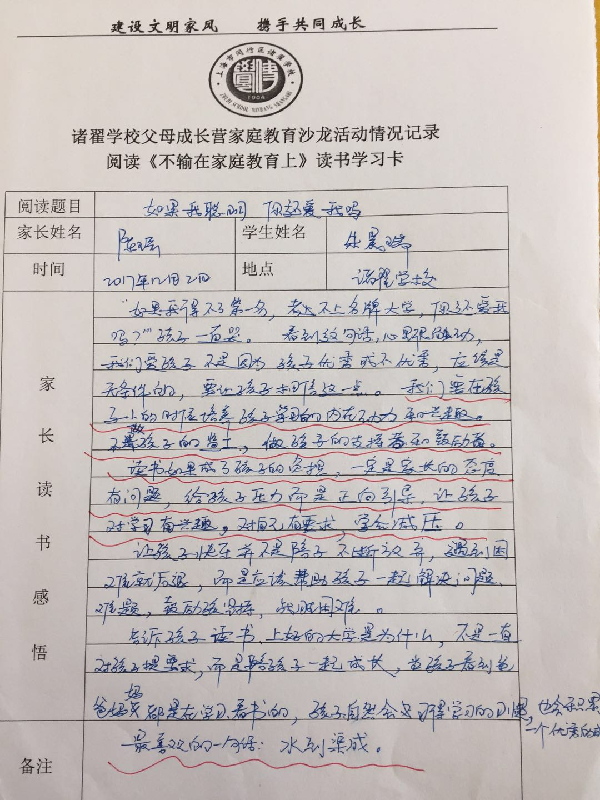 建设文明家风 携手共同成长
上海市闵行区诸翟学校
1904
诸翟学校父母成长营家庭教育沙龙活动情况记录
阅读《不输在家庭教育上》读书学习卡
阅读题目 如果我聪明 你还爱我吗
家长姓名 学生姓名 朱晨
时间 2017年12月2日 地点 诸翟学校
家长读书感悟
“如果我得不了第一名，考不上名牌大学，你还爱我
吗？”孩子一直哭。看到这句话，心里很触动，
我们爱孩子不是因为孩子优秀或不优秀，应该是
无条件的，要让孩子相信这一点。我们要在孩
子上的时候培养孩子学习的内在动力和兴趣。
不做孩子的监工，做孩子的支持者和鼓励者。
读书如果成了孩子的负担，一定是家长的态度
有问题，给孩子压力而是正向引导，让孩子
对学习有兴趣，对自己有要求，学会减压。
让孩子快乐并不是陪子不断放弃，遇到困
难就后退，而是应该帮助孩子一起解决问题
难题，鼓励孩坚持，战胜困难。
告诉孩子读书、上好的大学是为什么，不是一直
对孩子提要求，而是陪孩子一起成长，当孩子看到爸
爸妈妈都是在学习看书的，孩子自然会习得学习的习惯，也会积累
一个优秀的
备注 最喜欢的一句话：水到渠成。